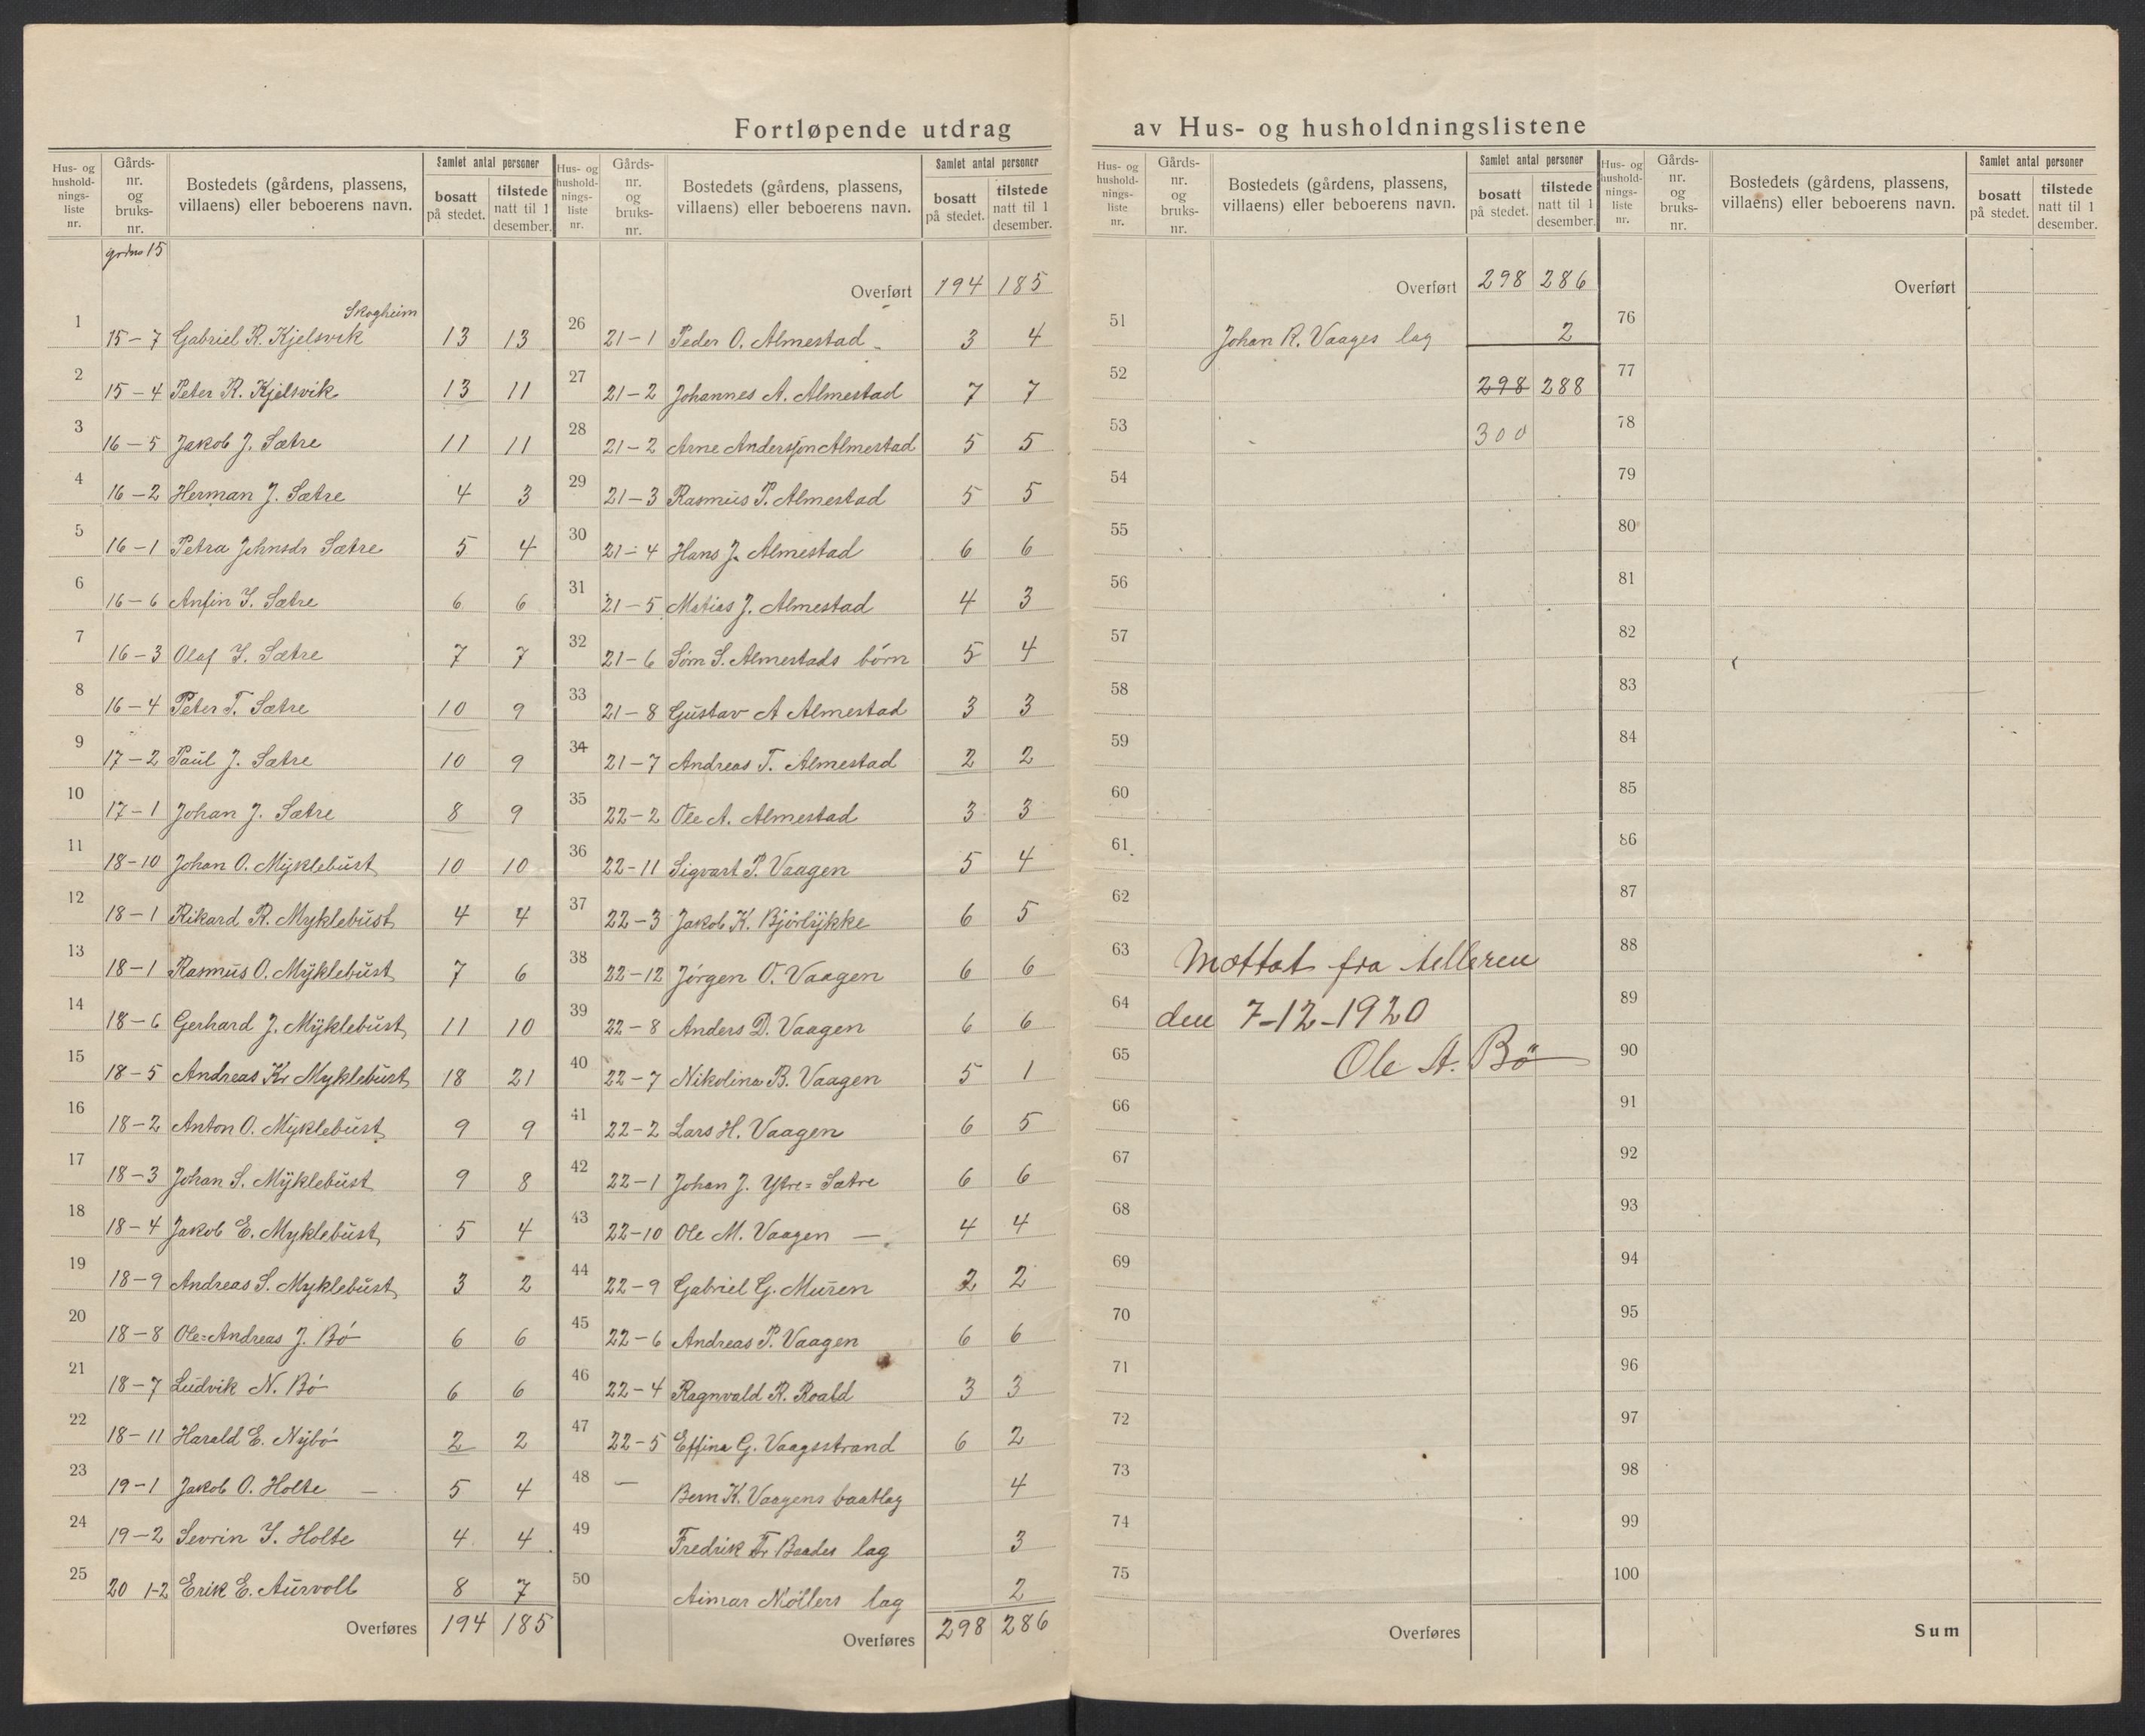 Fortløpende utdrag av Hus- og husholdningslistene
Hus- og hushold-nings-liste nr. Gårds-nr. og bruks-nr. Bostedets (gårdens, plassens, villaens) eller beboerens navn. Samlet antal personer bosatt på stedet. tilstede natt til 1 desember.
15
Skogheim
1 15-7 Gabriel R. Kjelsvik 13 13
2 15-4 Peter R. Kjelsvik 13 11
3 16-5 Jakob J. Sætre 11 11
4 16-2 Herman J. Sætre 4 3
5 16-1 Petra Johnsdr Sætre 5 4
6 16-6 Anfin I. Sætre 6 6
7 16-3 Olaf I. Sætre 7 7
8 16-4 Peter T. Sætre 10 9
9 17-2 Paul J. Sætre 10 9
10 17-1 Johan J. Sætre 8 9
11 18-10 Johan O. Myklebust 10 10
12 18-1 Rikard R. Myklebust 4 4
13 18-1 Rasmus O. Myklebust 7 6
14 18-6 Gerhard J. Myklebust 11 10
15 18-5 Andreas Kr Myklebust 18 21
16 18-2 Anton O. Myklebust 9 9
17 18-3 Johan S. Myklebust 9 8
18 18-4 Jakob E. Myklebust 5 4
19 18-9 Andreas S. Myklebust 3 2
20 18-8 Ole=Andreas J. Bó 6 6
21 18-7 Ludvik N. Bó 6 6
22 18-11 Harald E. Nybó 2 2
23 19-1 Jakob O. Holte — 5 4
24 19-2 Sevrin I. Holte 4 4
25 20 1-2 Erik E. Aurvoll 8 7
Overføres 194 185
Hus- og hushold-nings-liste nr. Gårds-nr. og bruks-nr. Bostedets (gårdens, plassens, villaens) eller beboerens navn. Samlet antal personer bosatt på stedet. tilstede natt til 1 desember.
Overført 194 185
26 21-1 Peder O. Almestad 3 4
27 21-2 Johannes A. Almestad 7 7
28 21-2 Arne Anderssøn Almestad 5 5
29 21-3 Rasmus P. Almestad 5 5
30 21-4 Hans J. Almestad 6 6
31 21-5 Matias J. Almestad 4 3
32 21-6 Sóm S. Almestads bórn 5 4
33 21-8 Gustav A Almestad 3 3
34 21-7 Andreas T. Almestad 2 2
35 22-2 Ole A. Almestad 3 3
36 22-11 Sigvart P. Vaagen 5 4
37 22-3 Jakob K. Bjórlykke 6 5
38 22-12 Jórgen O. Vaagen 6 6
39 22-8 Anders D. Vaagen 6 6
40 22-7 Nikolina B. Vaagen 5 1
41 22-2 Lars H. Vaagen 6 5
42 22-1 Johan J. Ytre=Sætre 6 6
43 22-10 Ole M. Vaagen — 4 4
44 22-9 Gabriel G. Muren 2 2
45 22-6 Andreas P. Vaagen 6 6
46 22-4 Ragnvald R. Roald 3 3
47 22-5 Effina G. Vaagsstrand 6 2
48 — Bern K. Vaagens baatlag 4
49 Fredrik Fr Baades lag 3
50 Aimar Nóllers lag 2
Overføres 298 286
Hus- og hushold-nings-liste nr. Gårds-nr. og bruks-nr. Bostedets (gårdens, plassens, villaens) eller beboerens navn. Samlet antal personer bosatt på stedet. tilstede natt til 1 desember.
Overført 298 286
51 Johan R. Vaages lag 2
52 298 288
53 300
54
55
56
57
58
59
60
61
62
63 Mottat fra telleren
64 den 7-12-1920
65 Ole A. Bö
66
67
68
69
70
71
72
73
74
75
Overføres
Hus- og hushold-nings-liste nr. Gårds-nr. og bruks-nr. Bostedets (gårdens, plassens, villaens) eller beboerens navn. Samlet antal personer bosatt på stedet. tilstede natt til 1 desember.
Overført
76
77
78
79
80
81
82
83
84
85
86
87
88
89
90
91
92
93
94
95
96
97
98
99
100
Sum